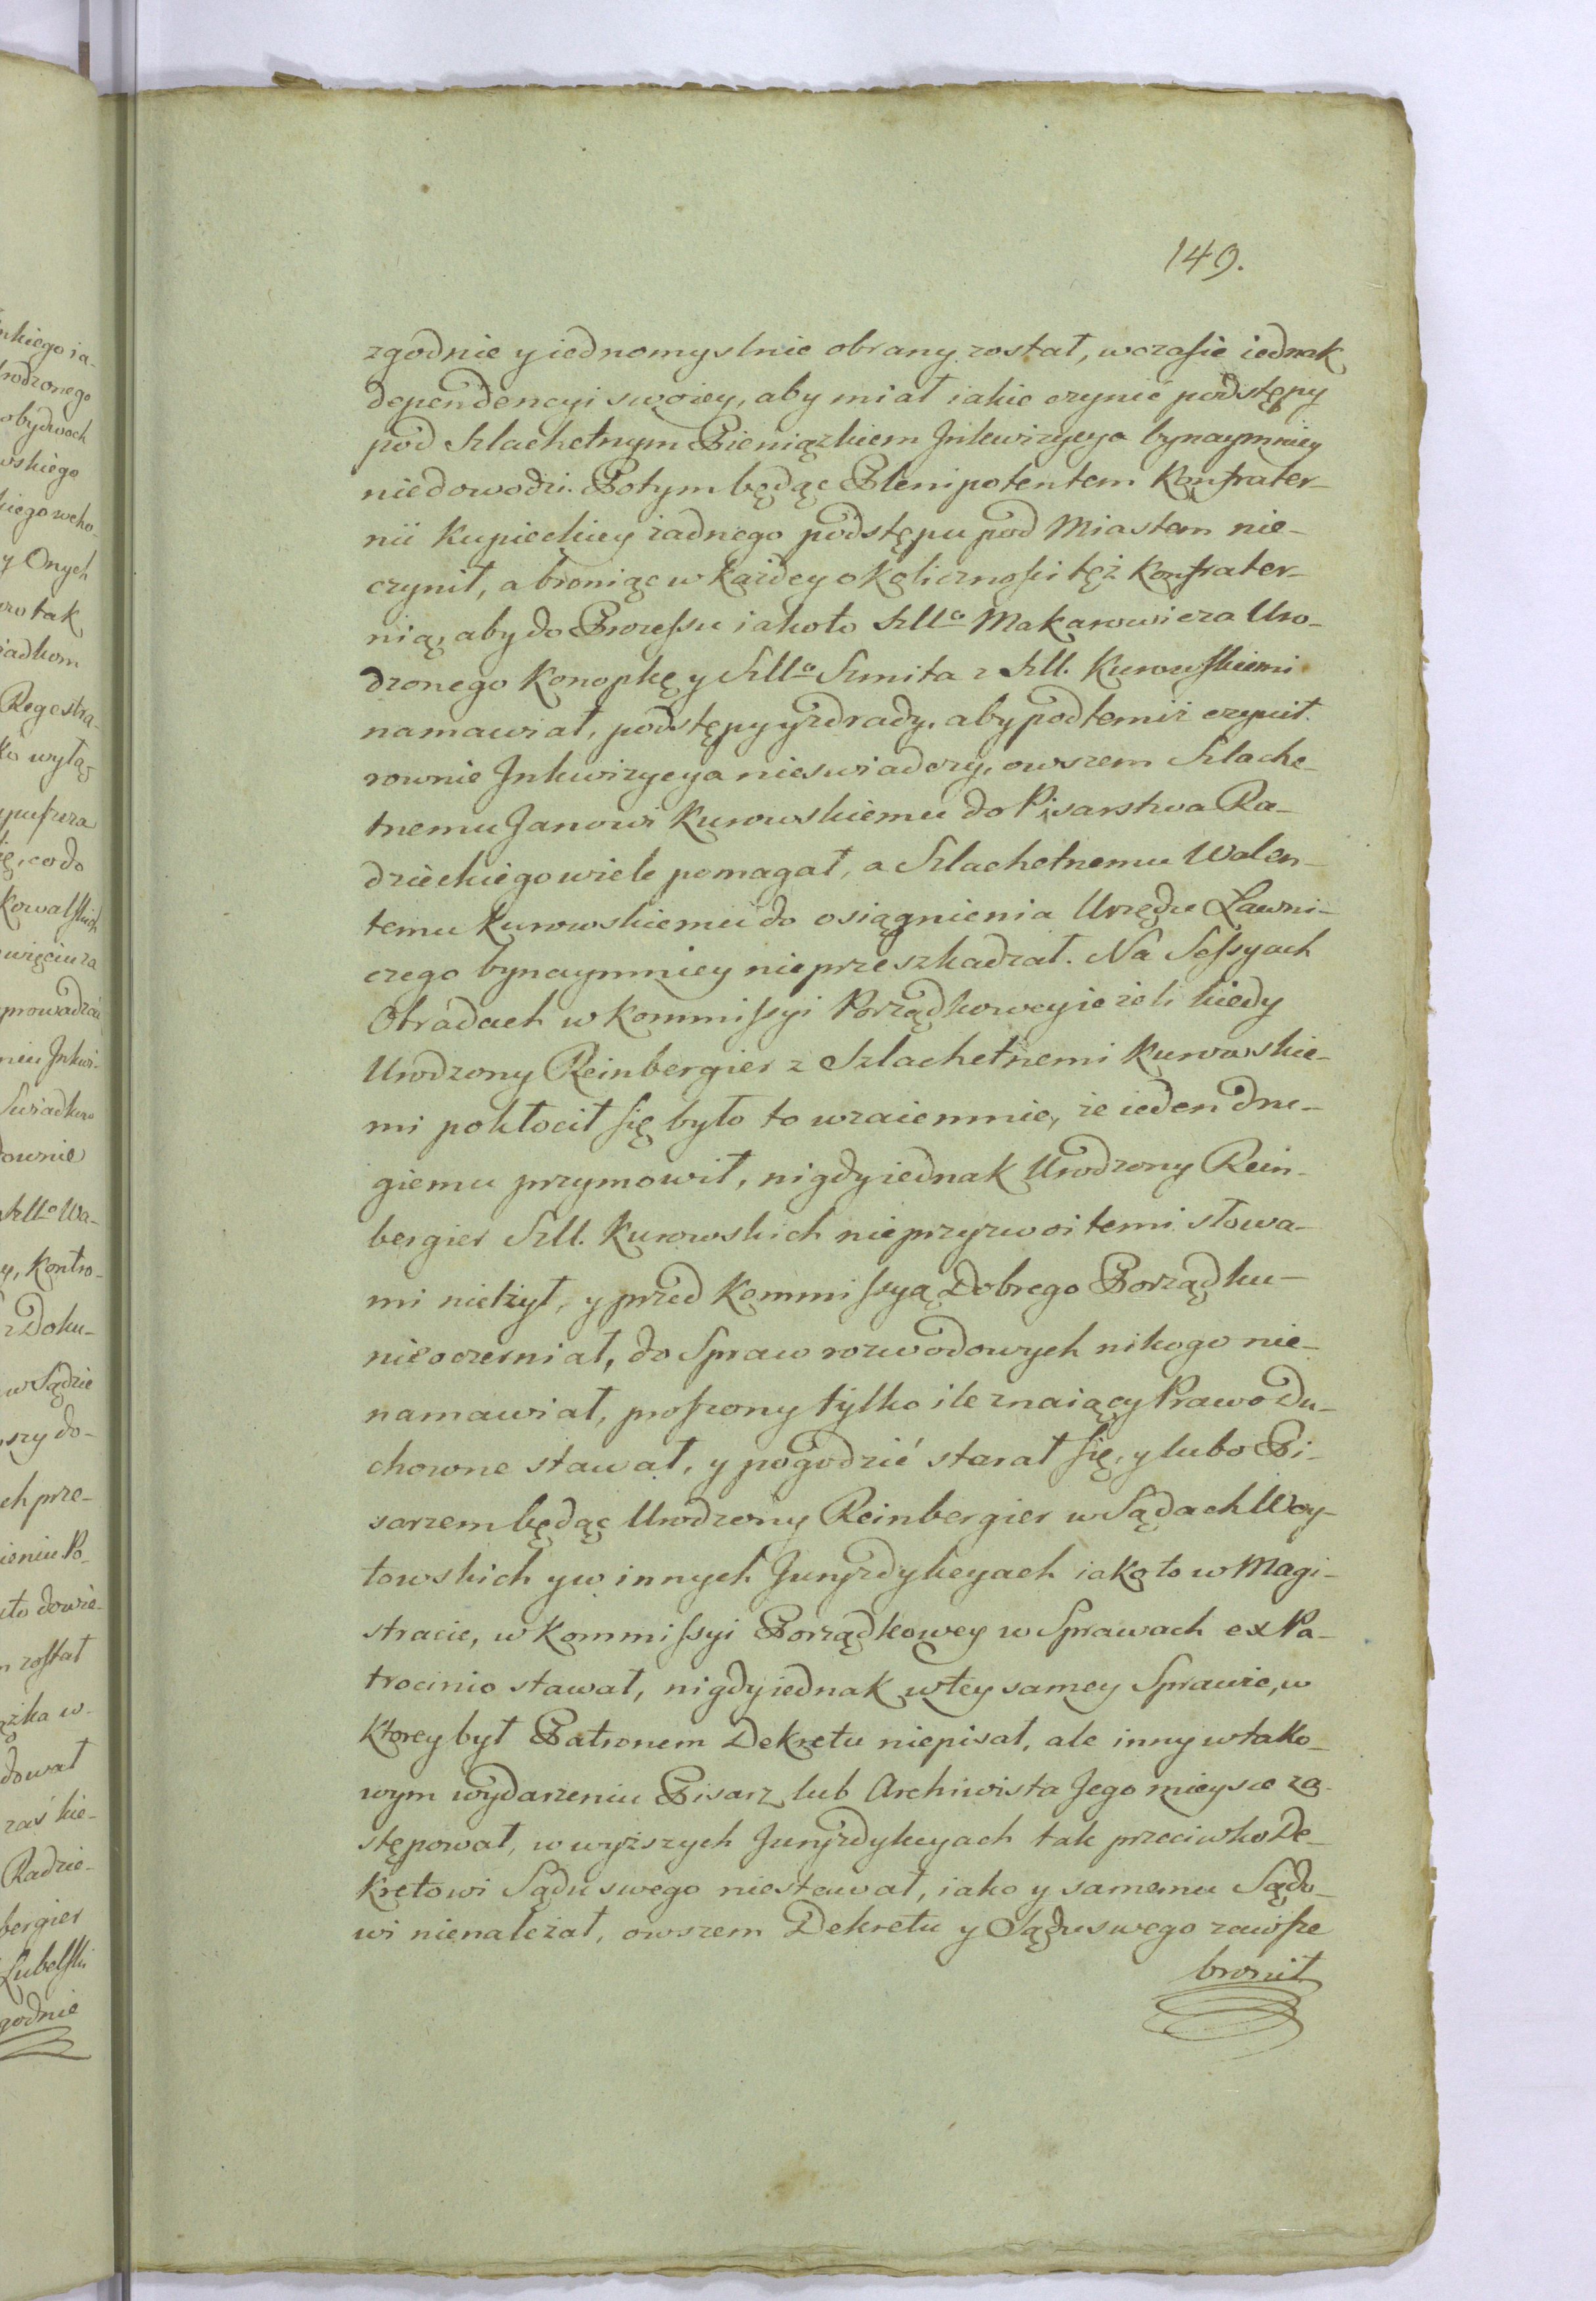 149.
zgodnie y iednomyslnie obrany został, w czasie iednak
dependencyi swoiey, aby miał iakie czynić podstępy
pod Szlachetnym Pieniązkiem Inkwizycya bynaymniey
niedowodzi. Potym będąc Plenipotentem Konfrater-
nii Kupieckiey żadnego podstępu pod Miastem nie-
czynił, a broniąc w każdey okoliczności też Konfrater-
nią, aby do Processu iakoto Szllo Makarowicza Uro-
dzonego Konopkę y Szllo Szmita z Szll. Kurowskiemi
namawiał, podstępy y zdrady, aby pod temiż czynił.
rownie Inkwizycya nieswiadczy, owszem Szlache-
tnemu Janowi Kurowskiemu do Pisarstwa Ra-
dzieckiego wiele pomagał, a Szlachetnemu Walen-
temu Kurowskiemu do osiągnienia Urzędu Ławni-
czego bynaymniey nieprzeszkadzał. Na Sessyach
Obradach w Kommissyi Porządkowey ieżeli kiedy
Urodzony Reinbergier z Szlachetnemi Kurowskie-
mi pokłocił się było to wzaiemnie, że ieden dru-
giemu przymowił, nigdy iednak Urodzony Rein-
bergier Szll. Kurowskich nieprzyzwoitemi słowa-
mi nielżył, y przed Kommissyą Dobrego Porządku-
nieoczerniał, do Spraw rozwodowych nikogo nie-
namawiał, proszony tylko ile znaiący Prawo Du-
chowne stawał, y pogodzić starał się, y lubo Pi-
sarzem będąc Urodzony Reinbergier w Sądach Woy-
towskich y w innych Juryzdykcyach iako to w Magi-
stracie, w Kommissyi Porządkowey w Sprawach ex Pa-
trocinio stawał, nigdy iednak w tey samey Sprawie, w
ktorey był Patronem Dekretu niepisał, ale inny w tako-
wym wydarzeniu Pisarz lub Archiwista Jego mieysce za-
stępował, w wyższych Juryzdykcyach tak przeciwko De-
kretowi Sądu swego niestawał, iako y samemu Sądo-
wi nienależał, owszem Dekretu y Sądu swego zawsze
bronił